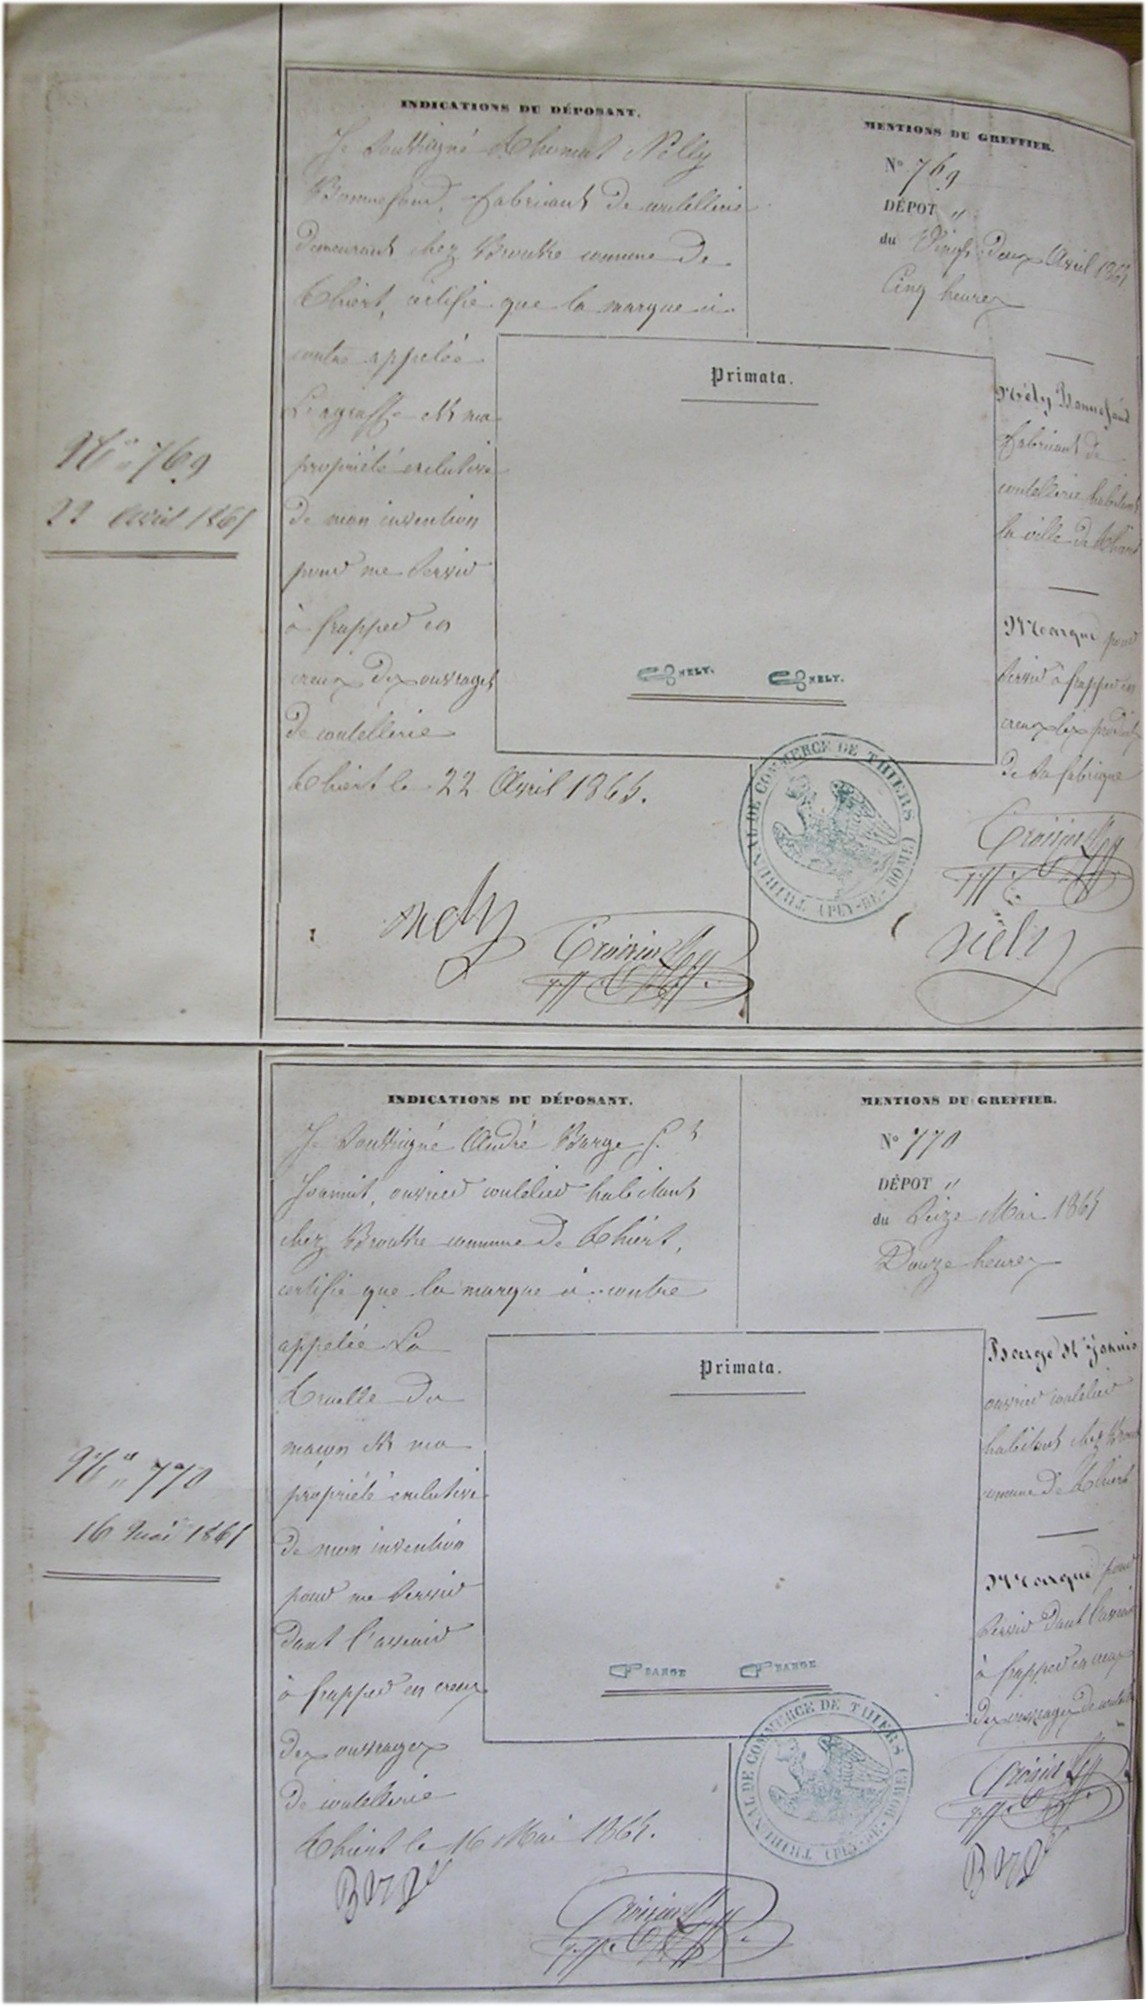 N° 769
22 Avril 1865
INDICATIONS DU DÉPOSANT.
Je soussigné Thomas Nélly
Bonnefond, fabricant de coutellerie
demeurant chez Broutte commune de
Thiers, certifie que la marque ci-
contre appelée
L'agraffe est ma
propriété exclusive
de mon invention
pour me servir
à frapper en
creux des ouvrages
de coutellerie
Thiers le 22 Avril 1865.
nely
MENTIONS DU GREFFIER.
N° 769
DÉPOT "
du Vingt-deux Avril 1865
Cinq heures
Primata.
NELY. NELY.
Nély Bonnefond
fabricant de
coutellerie habitant
la ville de Thiers
Marque pour
servir à frapper en
creux les produits
de sa fabrique
nély
TRIBUNAL DE COMMERCE DE THIERS
(PUY-DE-DOME)
N° 770
16 Mai 1865
INDICATIONS DU DÉPOSANT.
Je soussigné André Barge
ouvrier coutelier habitant
chez Broutte commune de Thiers,
certifie que la marque ci-contre
appelée La
Truelle du
maçon est ma
propriété exclusive
de mon invention
pour me servir
dans l'avenir
à frapper en creux
des ouvrages
de coutellerie
Thiers le 16 Mai 1865.
Barge
MENTIONS DU GREFFIER.
N° 770
DÉPOT "
du Seize Mai 1865
Douze heures
Primata.
BARGE BARGE
Barge
ouvrier coutelier
habitant chez
commune de Thiers
Marque pour
servir dans l'avenir
à frapper en creux
des ouvrages de
Barge
TRIBUNAL DE COMMERCE DE THIERS
(PUY-DE-DOME)